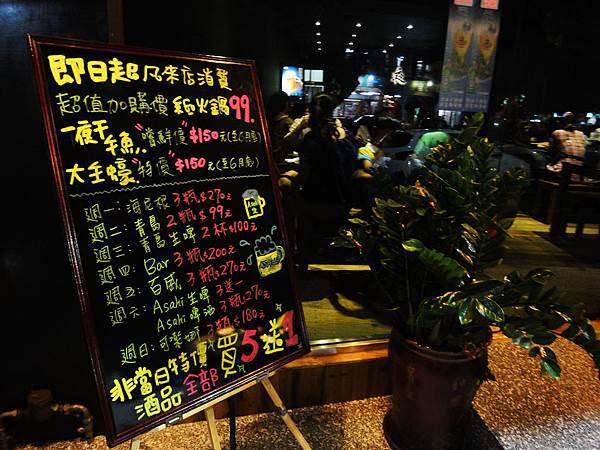 即日起凡來店消費
超值加購價 紙火鍋99.
一夜干魚."嚐鮮價"$150元(至6月底)
大生蠔."特價"$150元(至6月底)
週一:海尼根 3瓶$270元
週二:青島 2瓶$99元
週三:青島生啤 2杯$100元
週四:Bar 3瓶$200元
週五:百威 3瓶$270元
週六:Asahi生啤 3送一
Asahi啤酒 3瓶$270元
週日:可樂娜 3瓶$180元
非當日特價
酒品 全部 買5送1